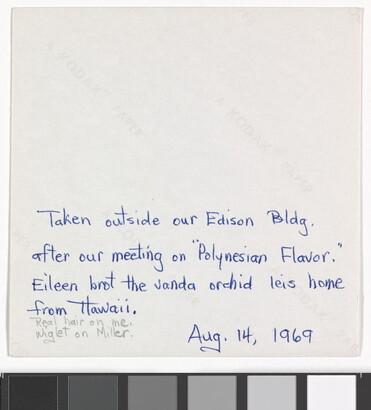 Taken outside our Edison Bldg.
after our meeting on "Polynesian Flavor."
Eileen brot the vanda orchid leis home
from Hawaii.
Real hair on me.
Wiglet on Miller.
Aug. 14, 1969
A KODAK PAPER
A KODAK PAPER